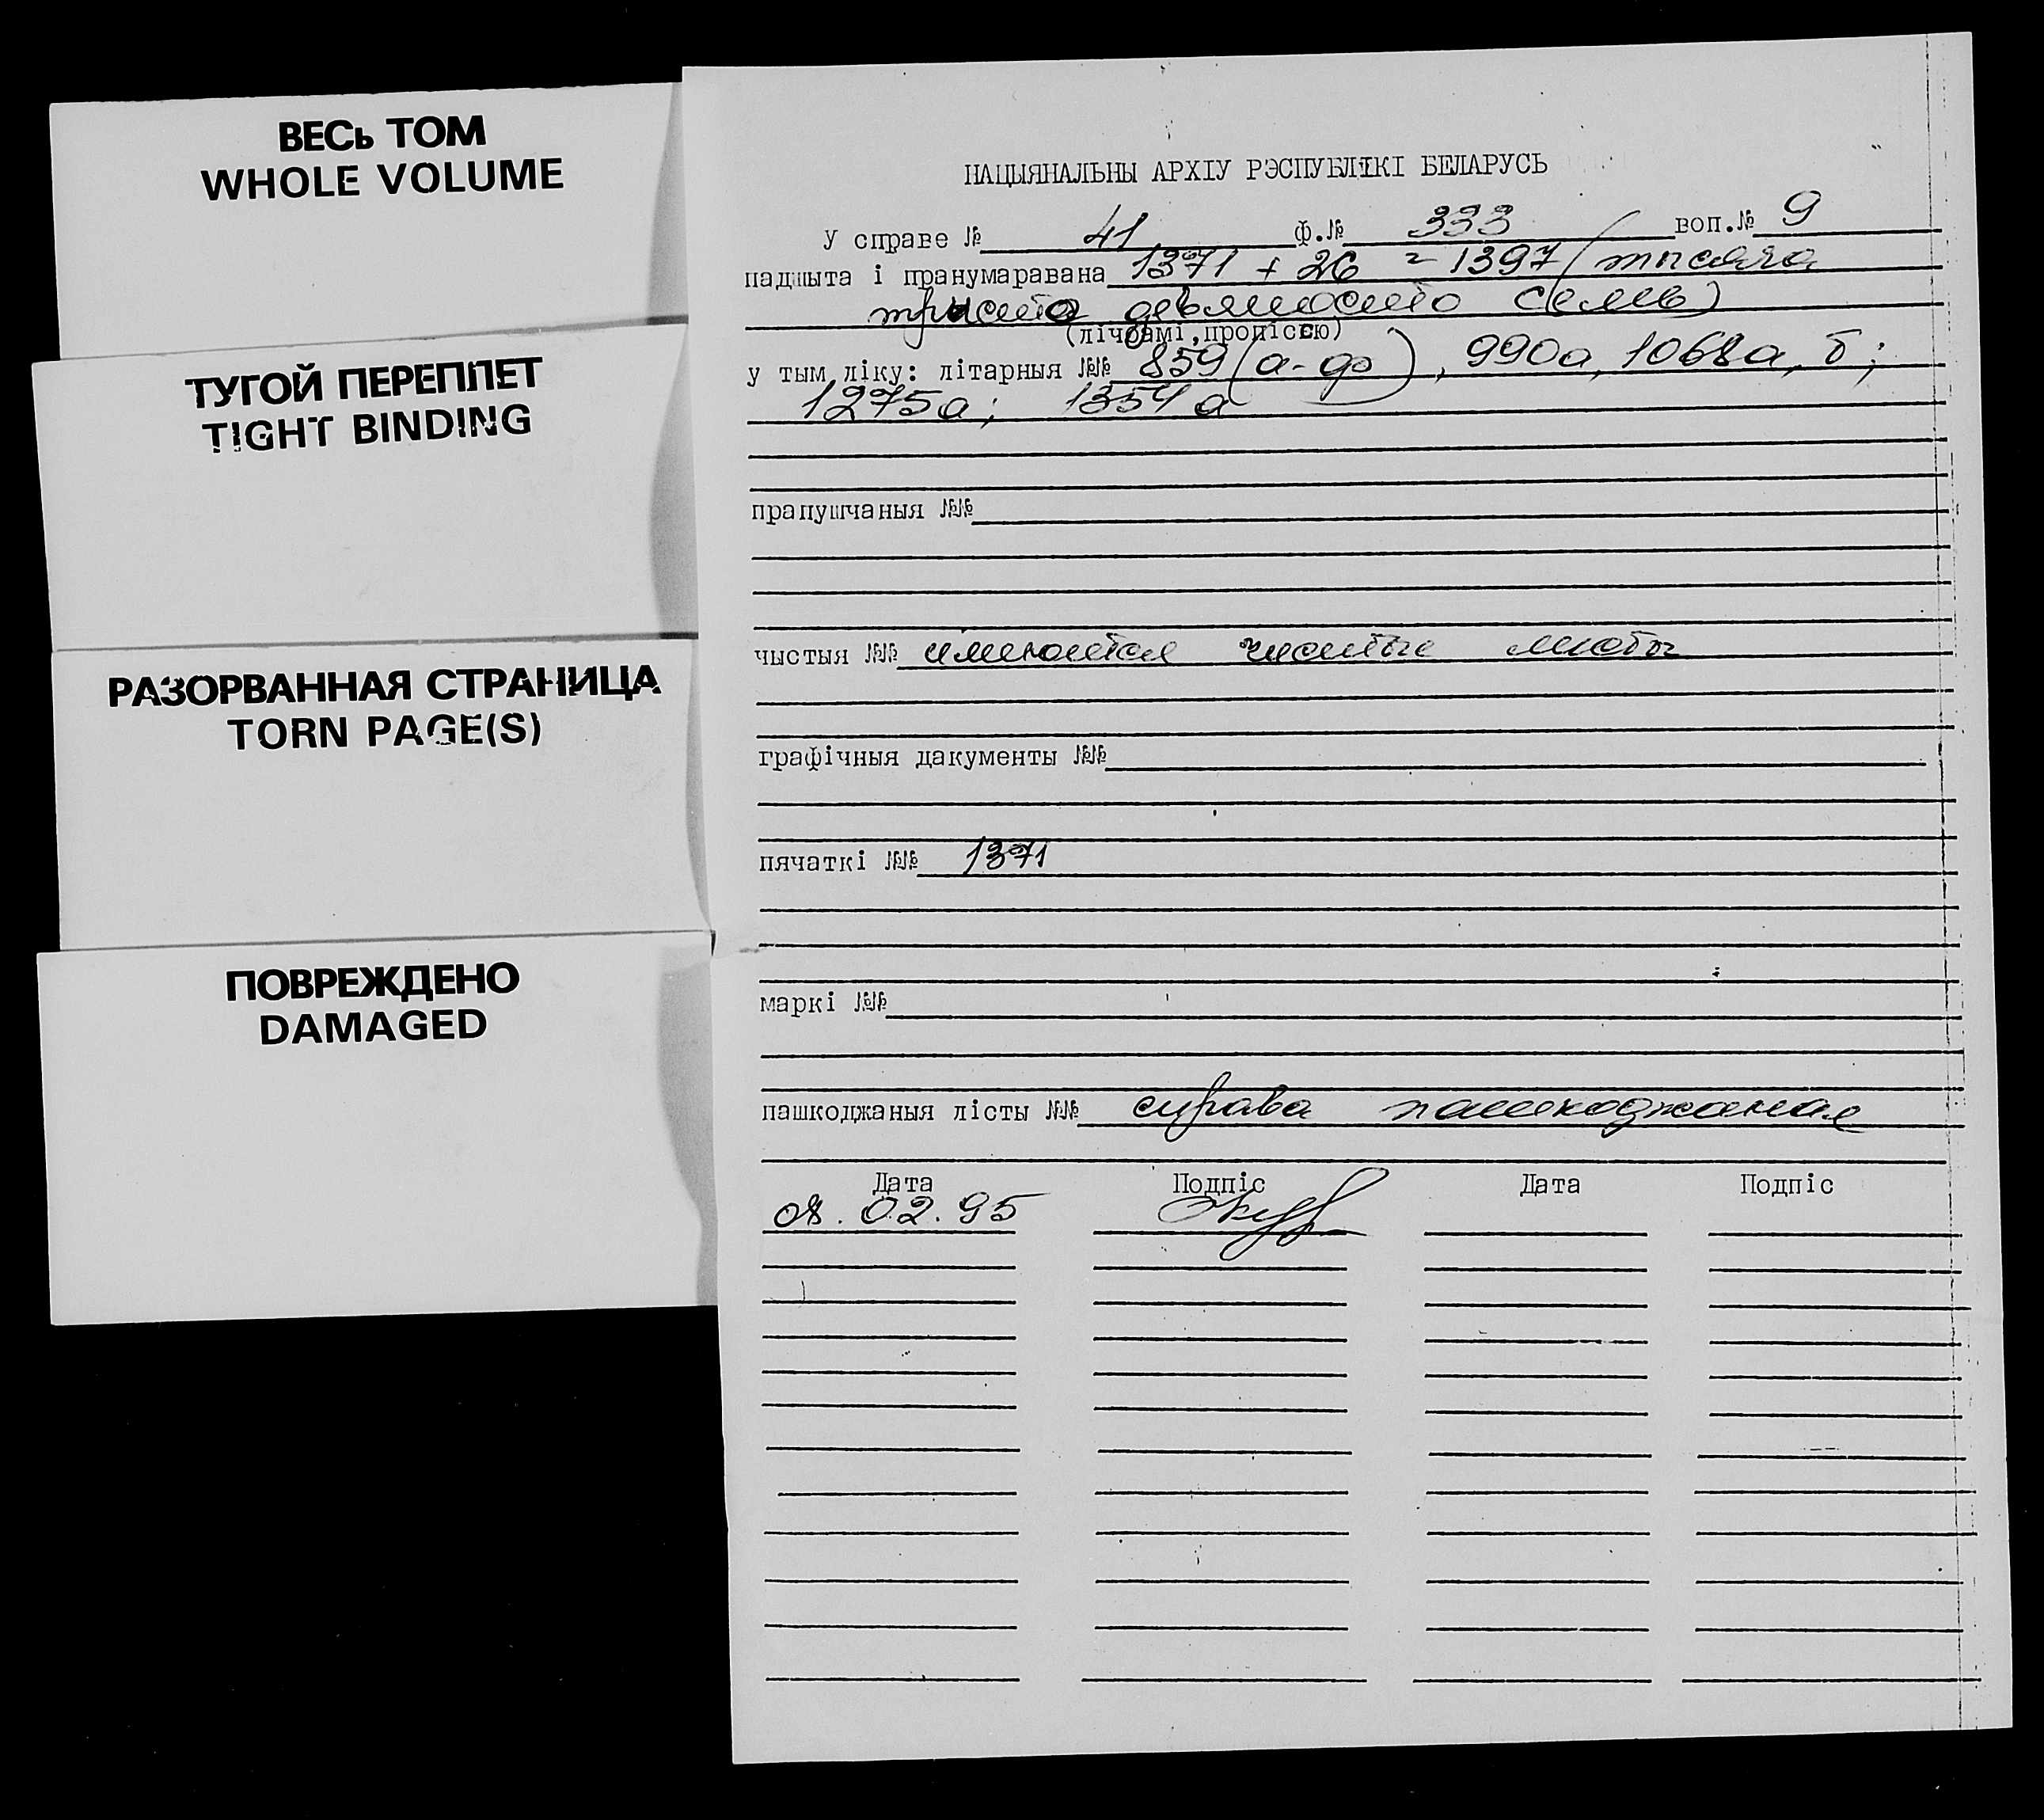 ВЕСЬ ТОМ
WHOLE VOLUME
ТУГОЙ ПЕРЕПЛЕТ
TIGHT BINDING
РАЗОРВАННАЯ СТРАНИЦА
TORN PAGE(S)
ПОВРЕЖДЕНО
DAMAGED
НАЦЫЯНАЛЬНЫ АРХІУ РЭСПУБЛІКІ БЕЛАРУСЬ
У справе № 41 ф.№ 333 воп.№ 9
падшыта і пранумаравана 1371 + 26 = 1397 (тысяча
триста девяносто семь)
(лічбамі, пропіссю)
у тым ліку: літарныя №№ 859 (а-ф), 990а, 1068а, б;
1275а; 1354а
прапушчаныя №№
чыстыя №№ имеются чистые листы
графічныя дакументы №№
пячаткі №№ 1371
маркі №№
пашкоджаныя лісты №№ справа пашкоджаная
Дата Подпіс Дата Подпіс
08.02.95